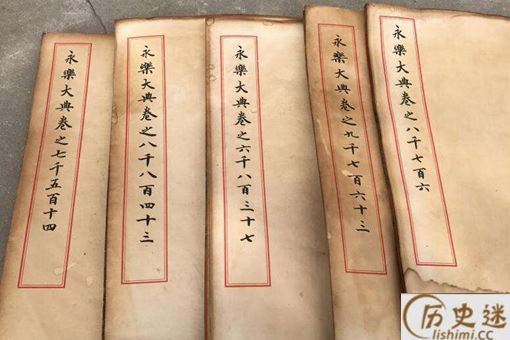 永樂大典卷之七千五百十四
永樂大典卷之八千八百四十三
永樂大典卷之六千八百三十七
永樂大典卷之九千七百六十三
永樂大典卷之八千七百六
历史迷
lishimi.cc